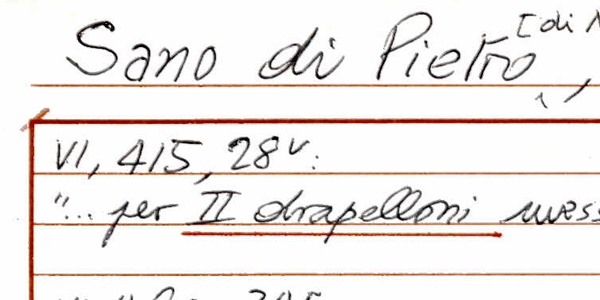 Sano di Pietro [di
VI, 415, 28v:
"... per II drapelloni